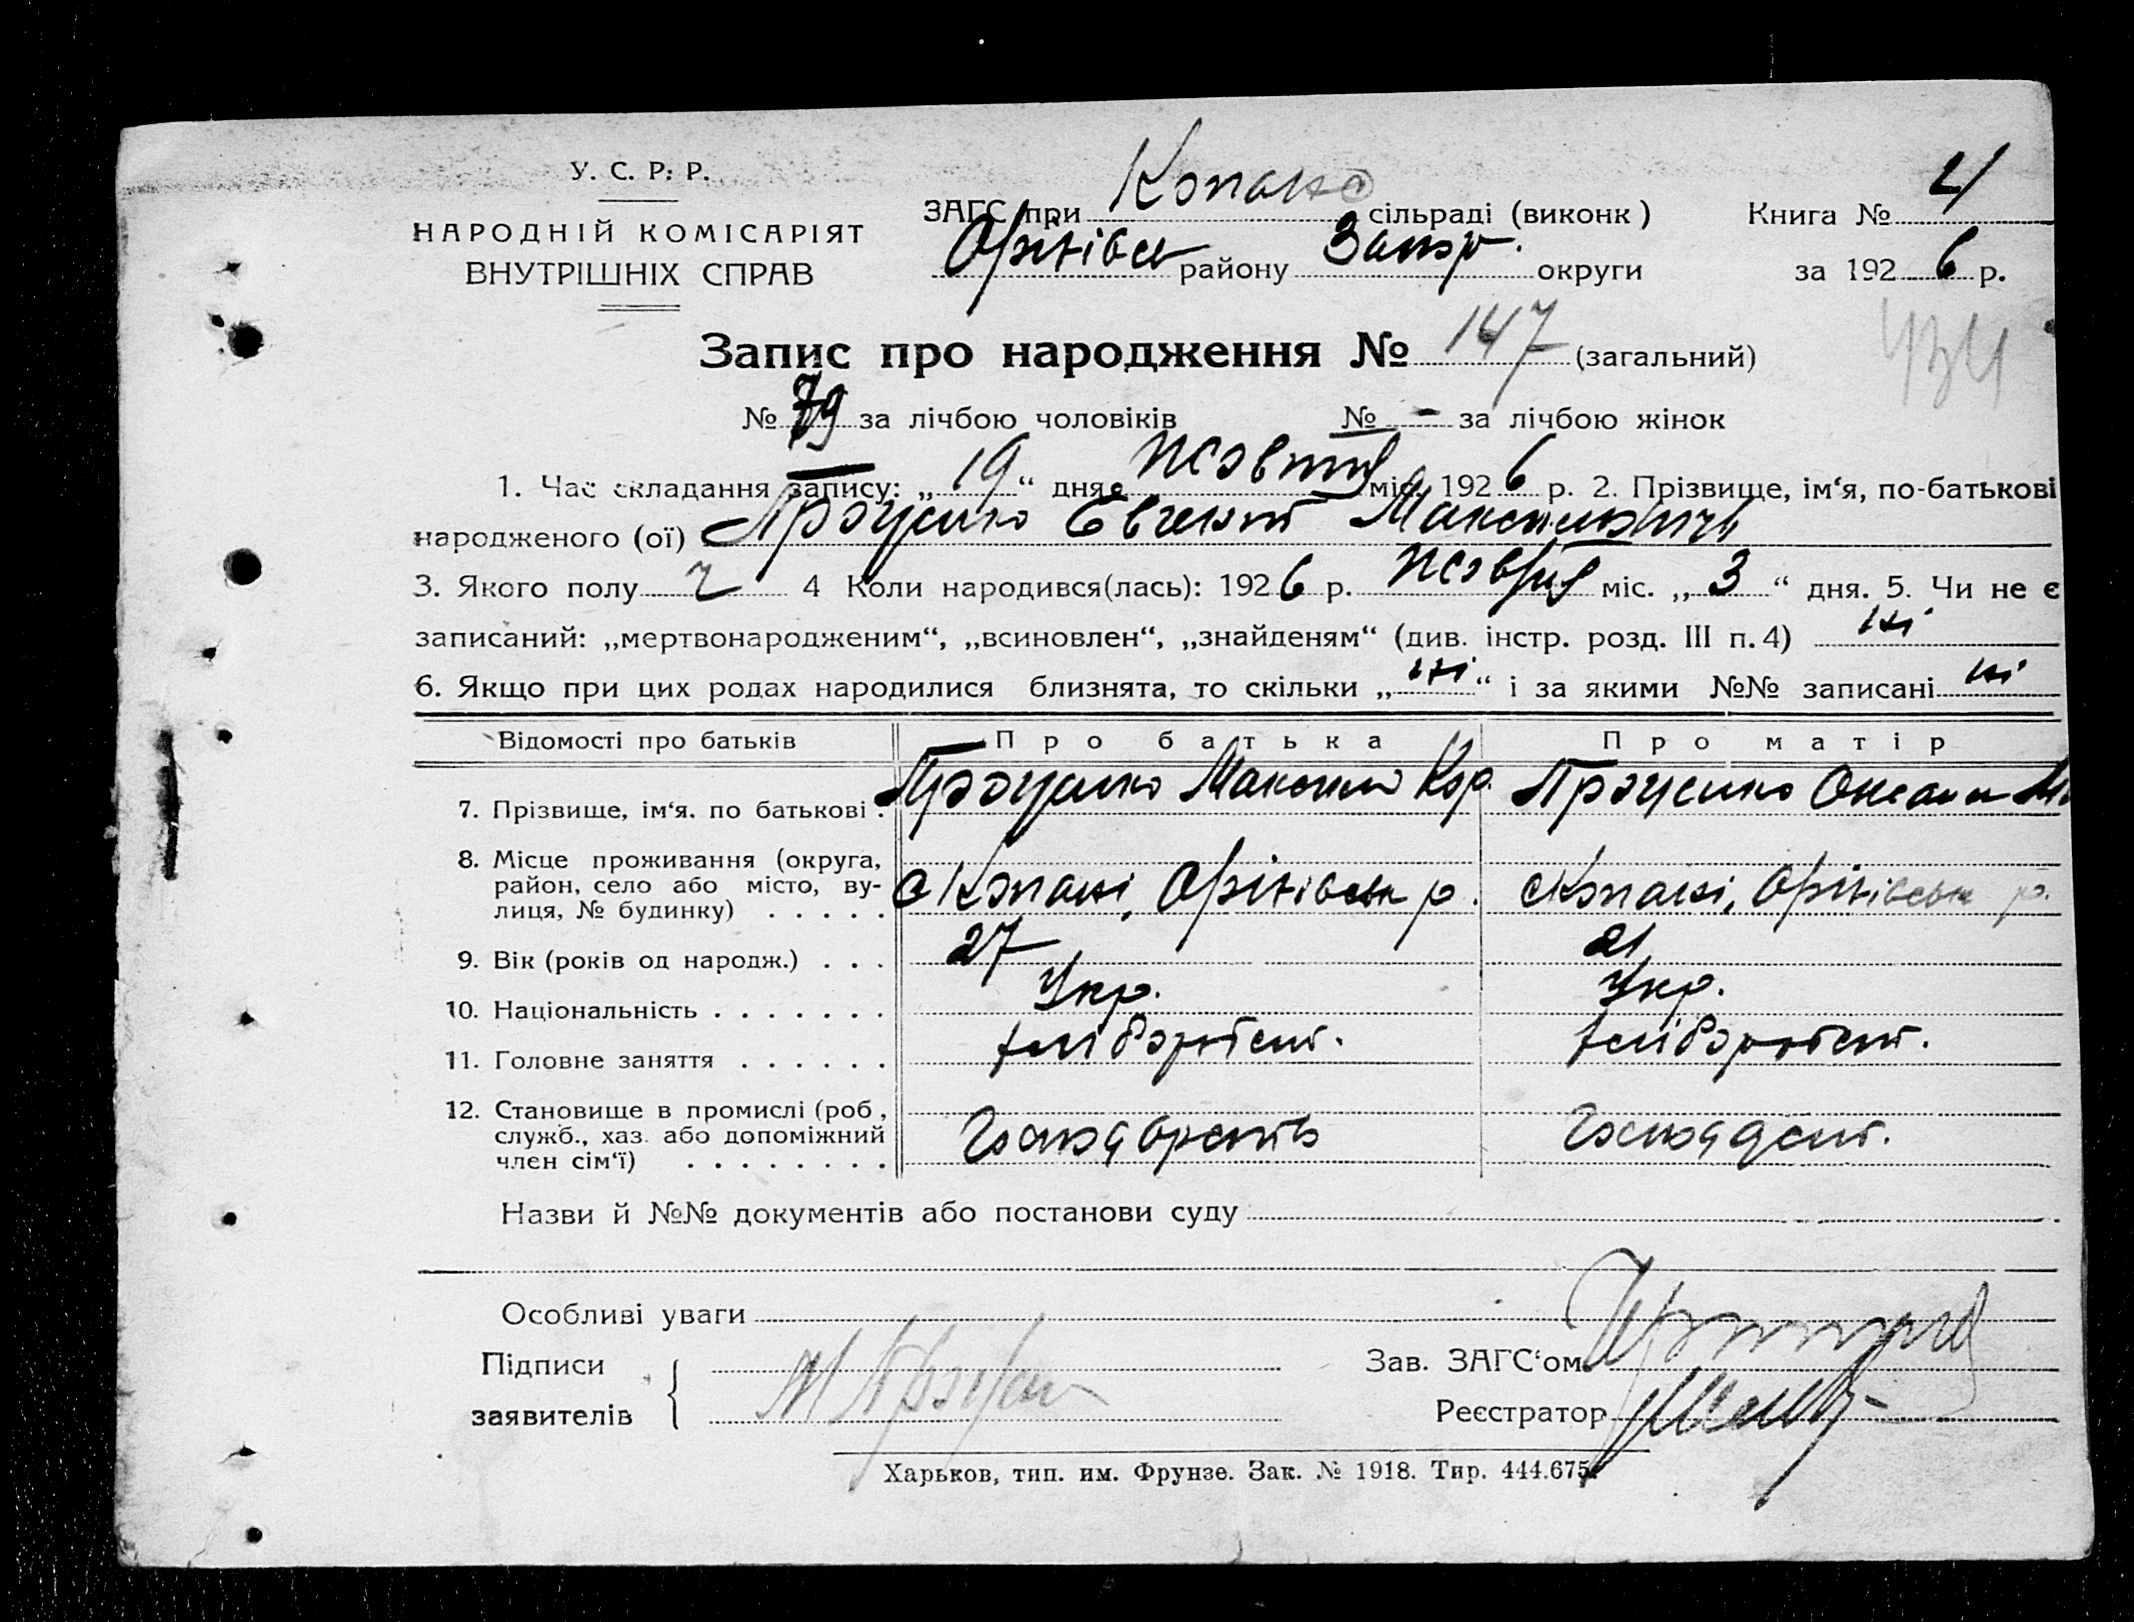 У. С. Р. Р.
НАРОДНІЙ КОМІСАРІЯТ
ВНУТРІШНІХ СПРАВ
ЗАГС при Копанс сільраді (виконк) Книга № 4
Оріхівсь району Запор. округи за 1926 р.
Запис про народження № 147 (загальний)
434
№ 79 за лічбою чоловіків № - за лічбою жінок
1. Час складання запису: „19“ дня жовтня міс. 1926 р. 2. Прізвище, ім‘я, по-батькові
народженого (ої) Проценко Евгент Максимович
3. Якого полу ч 4 Коли народився(лась): 1926 р. жовтня міс. „3“ дня. 5. Чи не є
записаний: „мертвонародженим“, „всиновлен“, „знайденям“ (див. інстр. розд. III п. 4) ні
6. Якщо при цих родах народилися близнята, то скільки „ні“ і за якими №№ записані ні
Відомості про батьків Про батька Про матір
7. Прізвище, ім‘я, по батькові . Проценко Максим Кор. Проценко Оксана
8. Місце проживання (округа,
район, село або місто, ву-
лиця, № будинку) . . . . . с Копані, Оріхівськ р. с Копані, Оріхівськ р.
9. Вік (років од народж.) . . . 27 21
10. Національність . . . . . . . Укр. Укр.
11. Головне заняття . . . . . . хліборобст. хліборобст.
12. Становище в промислі (роб.,
служб., хаз. або допоміжний
член сім‘ї) . . . . . . . .
Назви й №№ документів або постанови суду
Особливі уваги
Підписи
заявителів
Зав. ЗАГС‘ом
Реєстратор
Харьков, тип. им. Фрунзе. Зак. № 1918. Тир. 444.675.